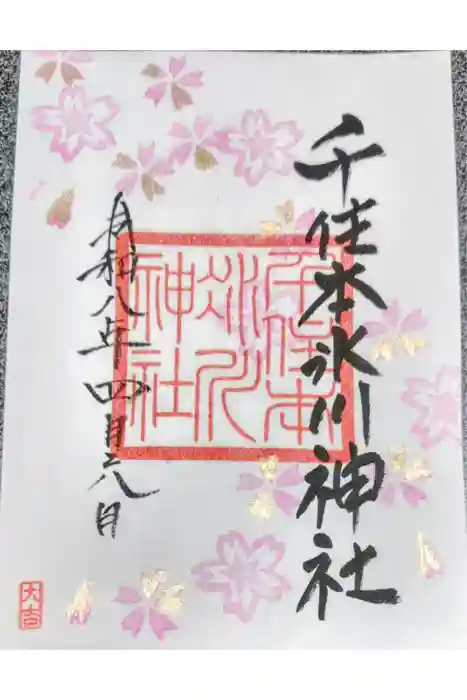 千住本氷川神社
千住本
氷川
神社
令和八年四月八日
大吉